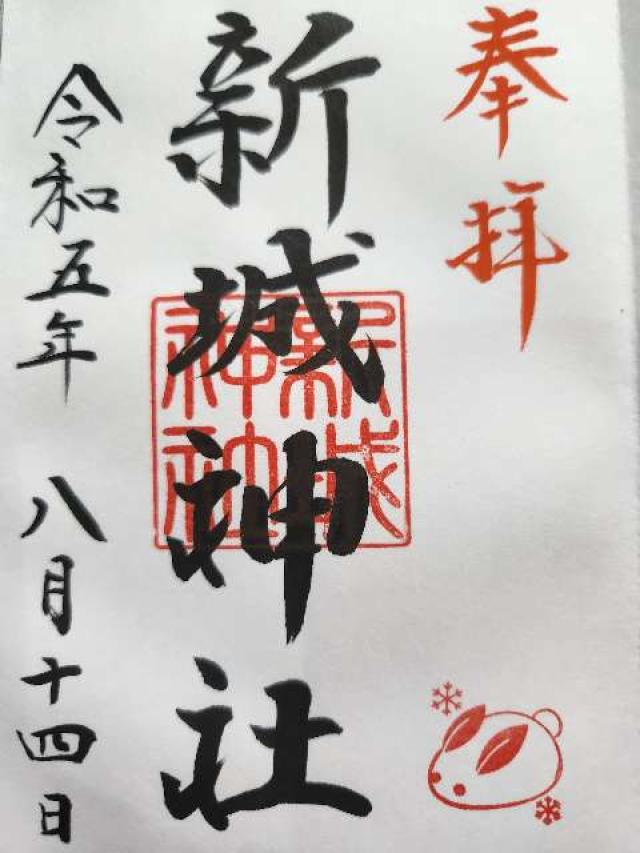 奉拝
新城神社
新城
神社
令和五年 八月十四日